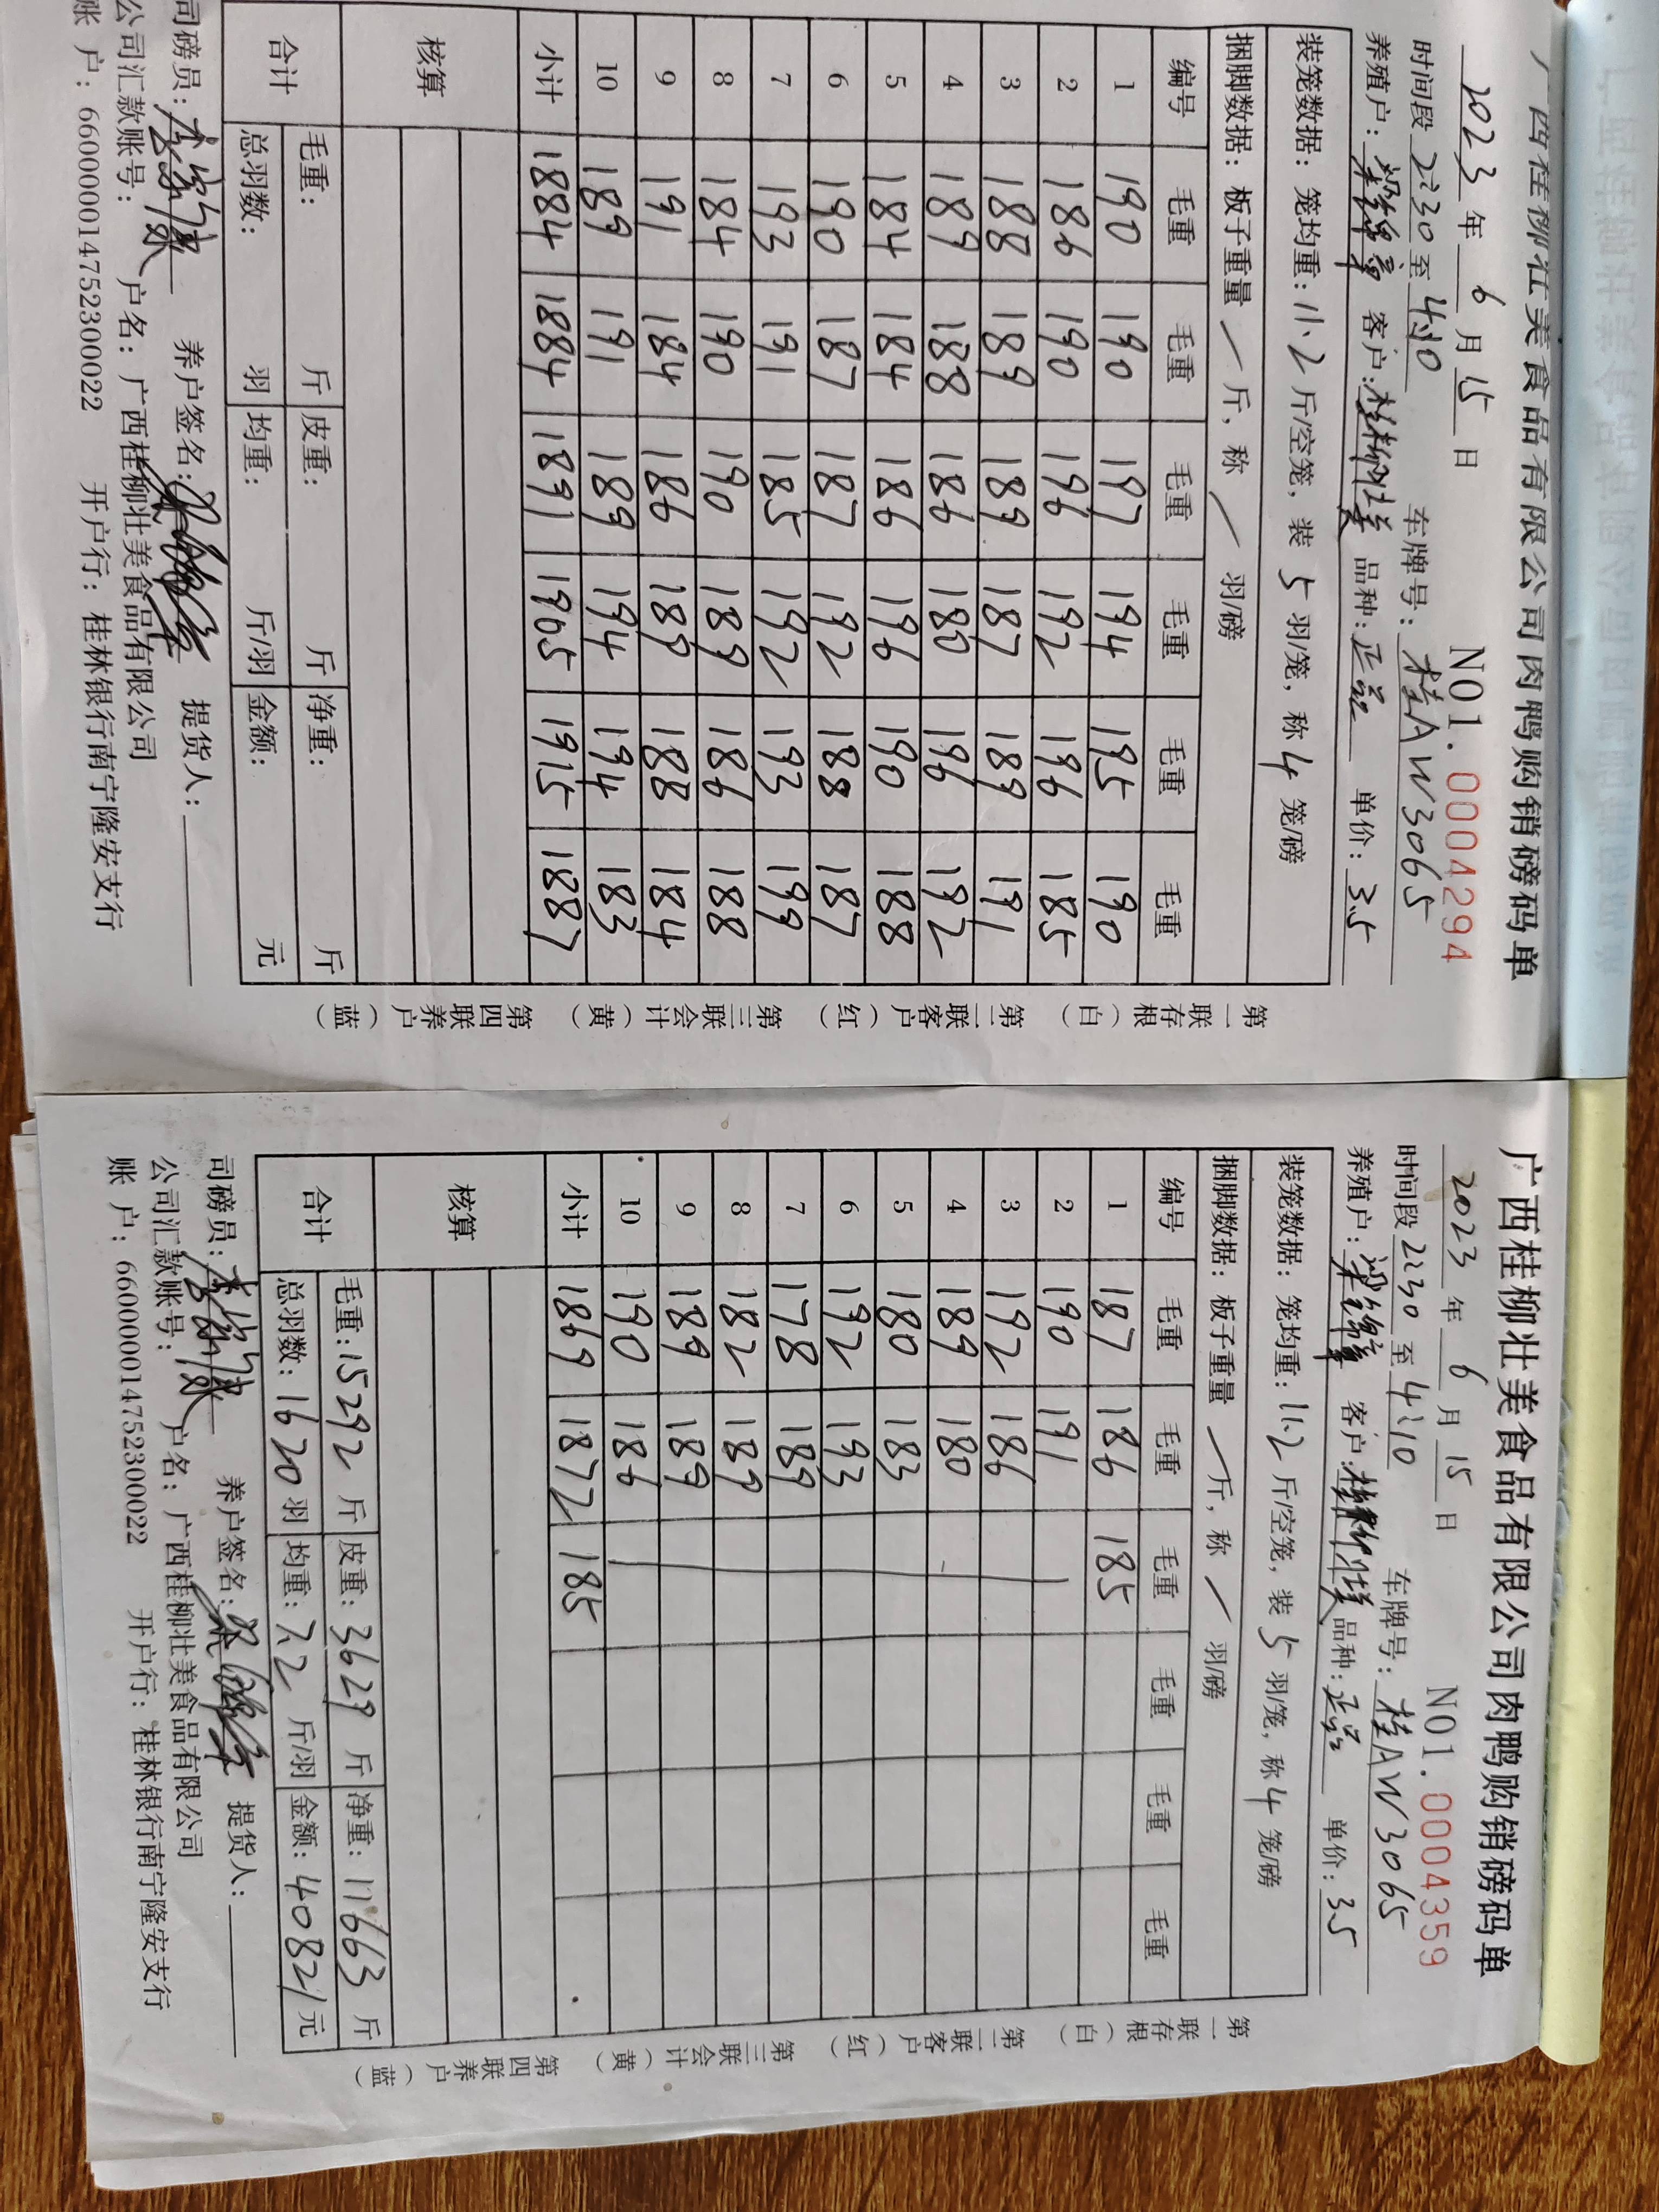 广西桂柳壮美食品有限公司肉鸭购销磅码单
NO1. 0004294
2023 年 6 月 15 日
时间段 2:30 至 4:10 车牌号: 桂AW3065
养殖户: 客户: 桂柳壮美 品种: 正品 单价: 3.5
装笼数据: 笼均重: 11.2 斤/空笼, 装 5 羽/笼, 称 4 笼/磅
捆脚数据: 板子重量 / 斤, 称 / 羽/磅
编号 毛重 毛重 毛重 毛重 毛重 毛重
1 190 190 197 194 195 190
2 186 190 196 192 196 185
3 188 189 189 187 189 191
4 189 188 186 180 196 192
5 184 184 186 196 190 188
6 190 187 187 192 188 187
7 193 191 185 192 193 199
8 184 190 190 189 186 188
9 191 184 186 189 188 184
10 189 191 189 194 194 183
小计 1884 1884 1891 1905 1915 1887
核算
合计 毛重: 斤 皮重: 斤 净重: 斤
总羽数: 羽 均重: 斤/羽 金额: 元
司磅员: 养户签名: 提货人:
公司汇款账号: 户名: 广西桂柳壮美食品有限公司
账 户: 660000014752300022 开户行: 桂林银行南宁隆安支行
第一联存根(白) 第二联客户(红) 第三联会计(黄) 第四联养户(蓝)
广西桂柳壮美食品有限公司肉鸭购销磅码单
NO1. 0004359
2023 年 6 月 15 日
时间段 22:30 至 4:10 车牌号: 桂AW3065
养殖户: 客户: 桂柳壮美 品种: 正品 单价: 3.5
装笼数据: 笼均重: 11.2 斤/空笼, 装 5 羽/笼, 称 4 笼/磅
捆脚数据: 板子重量 / 斤, 称 / 羽/磅
编号 毛重 毛重 毛重 毛重 毛重 毛重
1 187 186 185
2 190 191
3 192 186
4 189 180
5 180 183
6 192 193
7 178 189
8 182 189
9 189 189
10 190 186
小计 1869 1872 185
核算
合计 毛重: 15292 斤 皮重: 3629 斤 净重: 11663 斤
总羽数: 1620 羽 均重: 7.2 斤/羽 金额: 40821 元
司磅员: 养户签名: 提货人:
公司汇款账号: 户名: 广西桂柳壮美食品有限公司
账 户: 660000014752300022 开户行: 桂林银行南宁隆安支行
第一联存根(白) 第二联客户(红) 第三联会计(黄) 第四联养户(蓝)